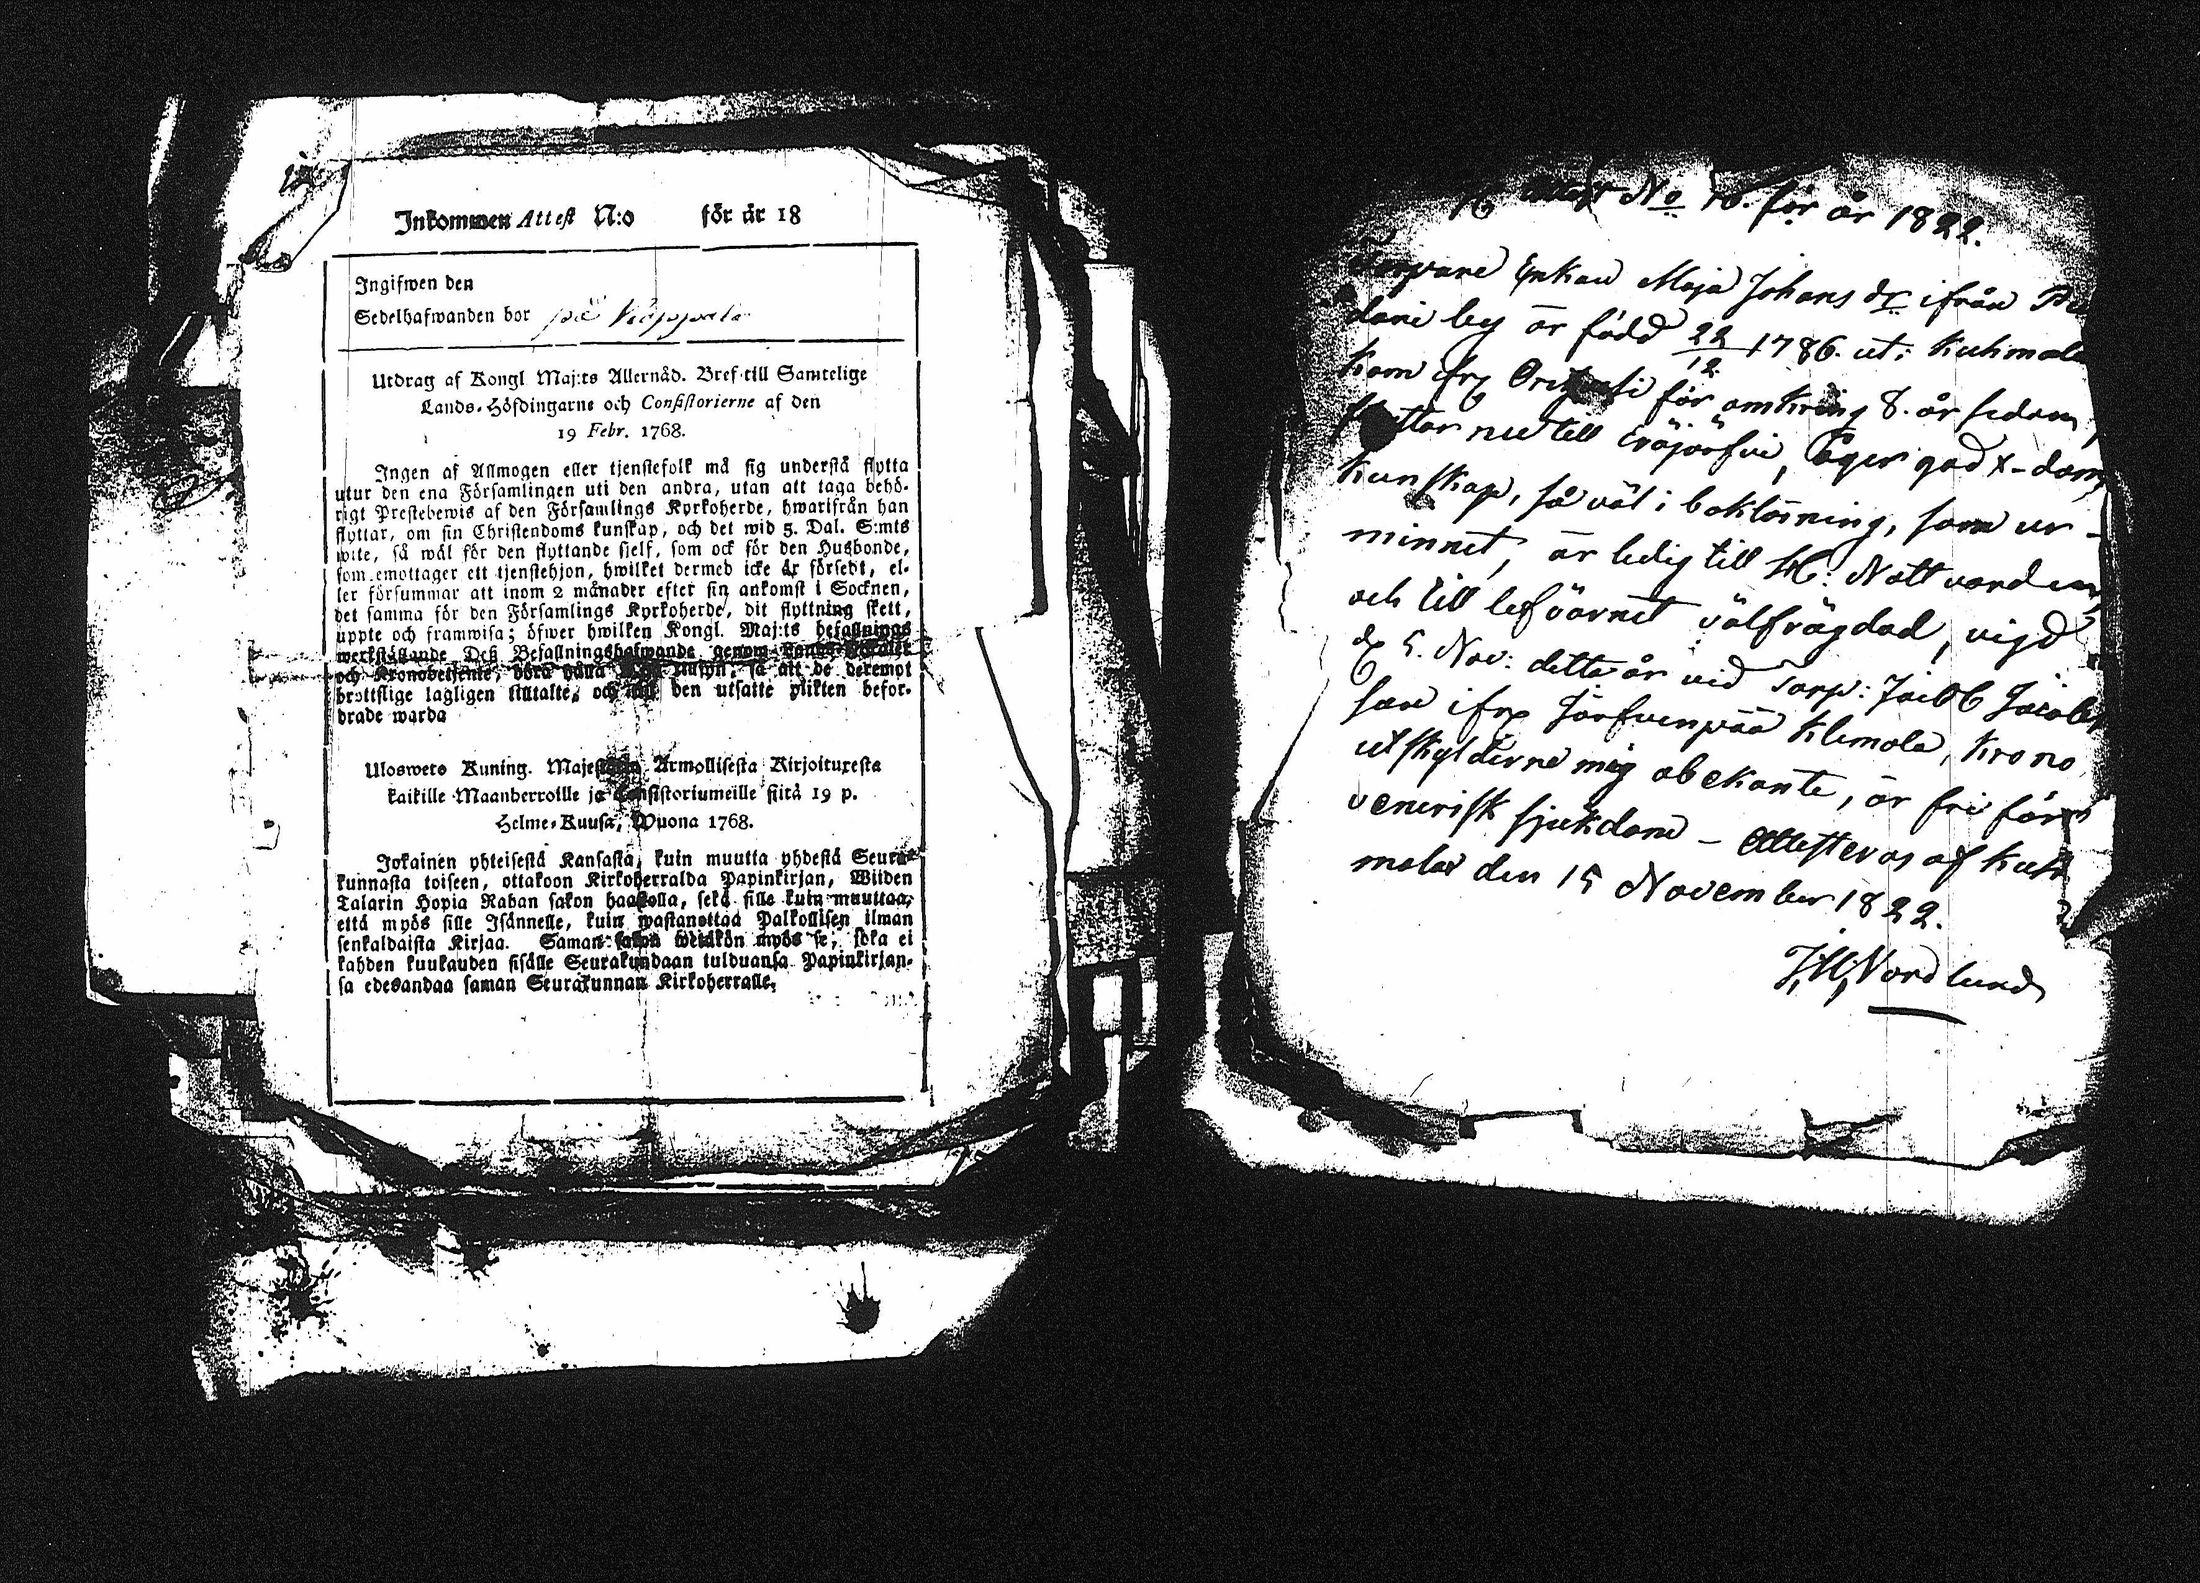 Inkommen Attest N:o för år 18
Ingifwen den
Sedelhafwanden bor på
Utdrag af Kongl Maj:ts Allernåd. Bref till Samtelige
Lands-Höfdingarne och Consistorierne af den
19 Febr. 1768.
Ingen af Allmogen eller tjenstefolk må sig understå flytta
utur den ena Församlingen uti den andra, utan att taga behö-
rigt Prestebewis af den Församlings Kyrkoherde, hwarifrån han
flyttar, om sin Christendoms kunskap, och det wid 5. Dal. S:mts
wite, så wäl för den flyttande sielf, som ock för den Husbonde,
som emottager ett tjenstehjon, hwilket dermed icke är försedt, el-
ler försummar att inom 2 månader efter sin ankomst i Socknen,
det samma för den Församlings Kyrkoherde, dit flyttning skett,
uppte och framwisa; öfwer hwilken Kongl. Maj:ts befallnings
werkställande Deß Befallningshafwande genom
och Kronobetjente, böra hålla så att de deremot
brottslige lagligen tilltalte, och den utsatte plikten befor-
drade warda
Ulosweto Kuning. Majestetin Armollisesta Kirjoituxesta
kaikille Maanherroille ja Consistoriumeille siitä 19 p.
Helme-Kuusa, Wuona 1768.
Jokainen yhteisestä Kansasta, kuin muutta yhdestä Seura-
kunnasta toiseen, ottakoon Kirkoherralda Papinkirjan, Wiiden
Talarin Hopia Rahan sakon haastolla, sekä sille kuin muuttaa,
että myös sille Isännelle, kuin wastanottaa Palkollisen ilman
senkaldaista Kirjaa. Saman sakon wetäkön myös se, joka ei
kahden kuukauden sisälle Seurakundaan tulduansa Papinkirjan-
sa edesandaa saman Seurakunnan Kirkoherralle.
Attest No 10. för år 1822.
Torpare Enkan Maja Johans dr ifrån
by är född 22/12 1786. uti Kuhmala
kom ifrån för omkring 8. år sedan,
flyttar nu till Eräjärfvi, Äger god x-doms
kunskap, så väl i bokläsning, som ur-
minnet, är ledig till H: Nattvarden,
och till lefvärnet välfrägdad, vigd
d 5. Nov: detta år vid Torp: Jacob Jacobs
son ifrån Järfvenpää Klemola, Krono
utskylderne mig obekante, är fri från
venerisk sjukdom – Attesteras af Kuh
malax den 15 November 1822.
J. H. Nordlund